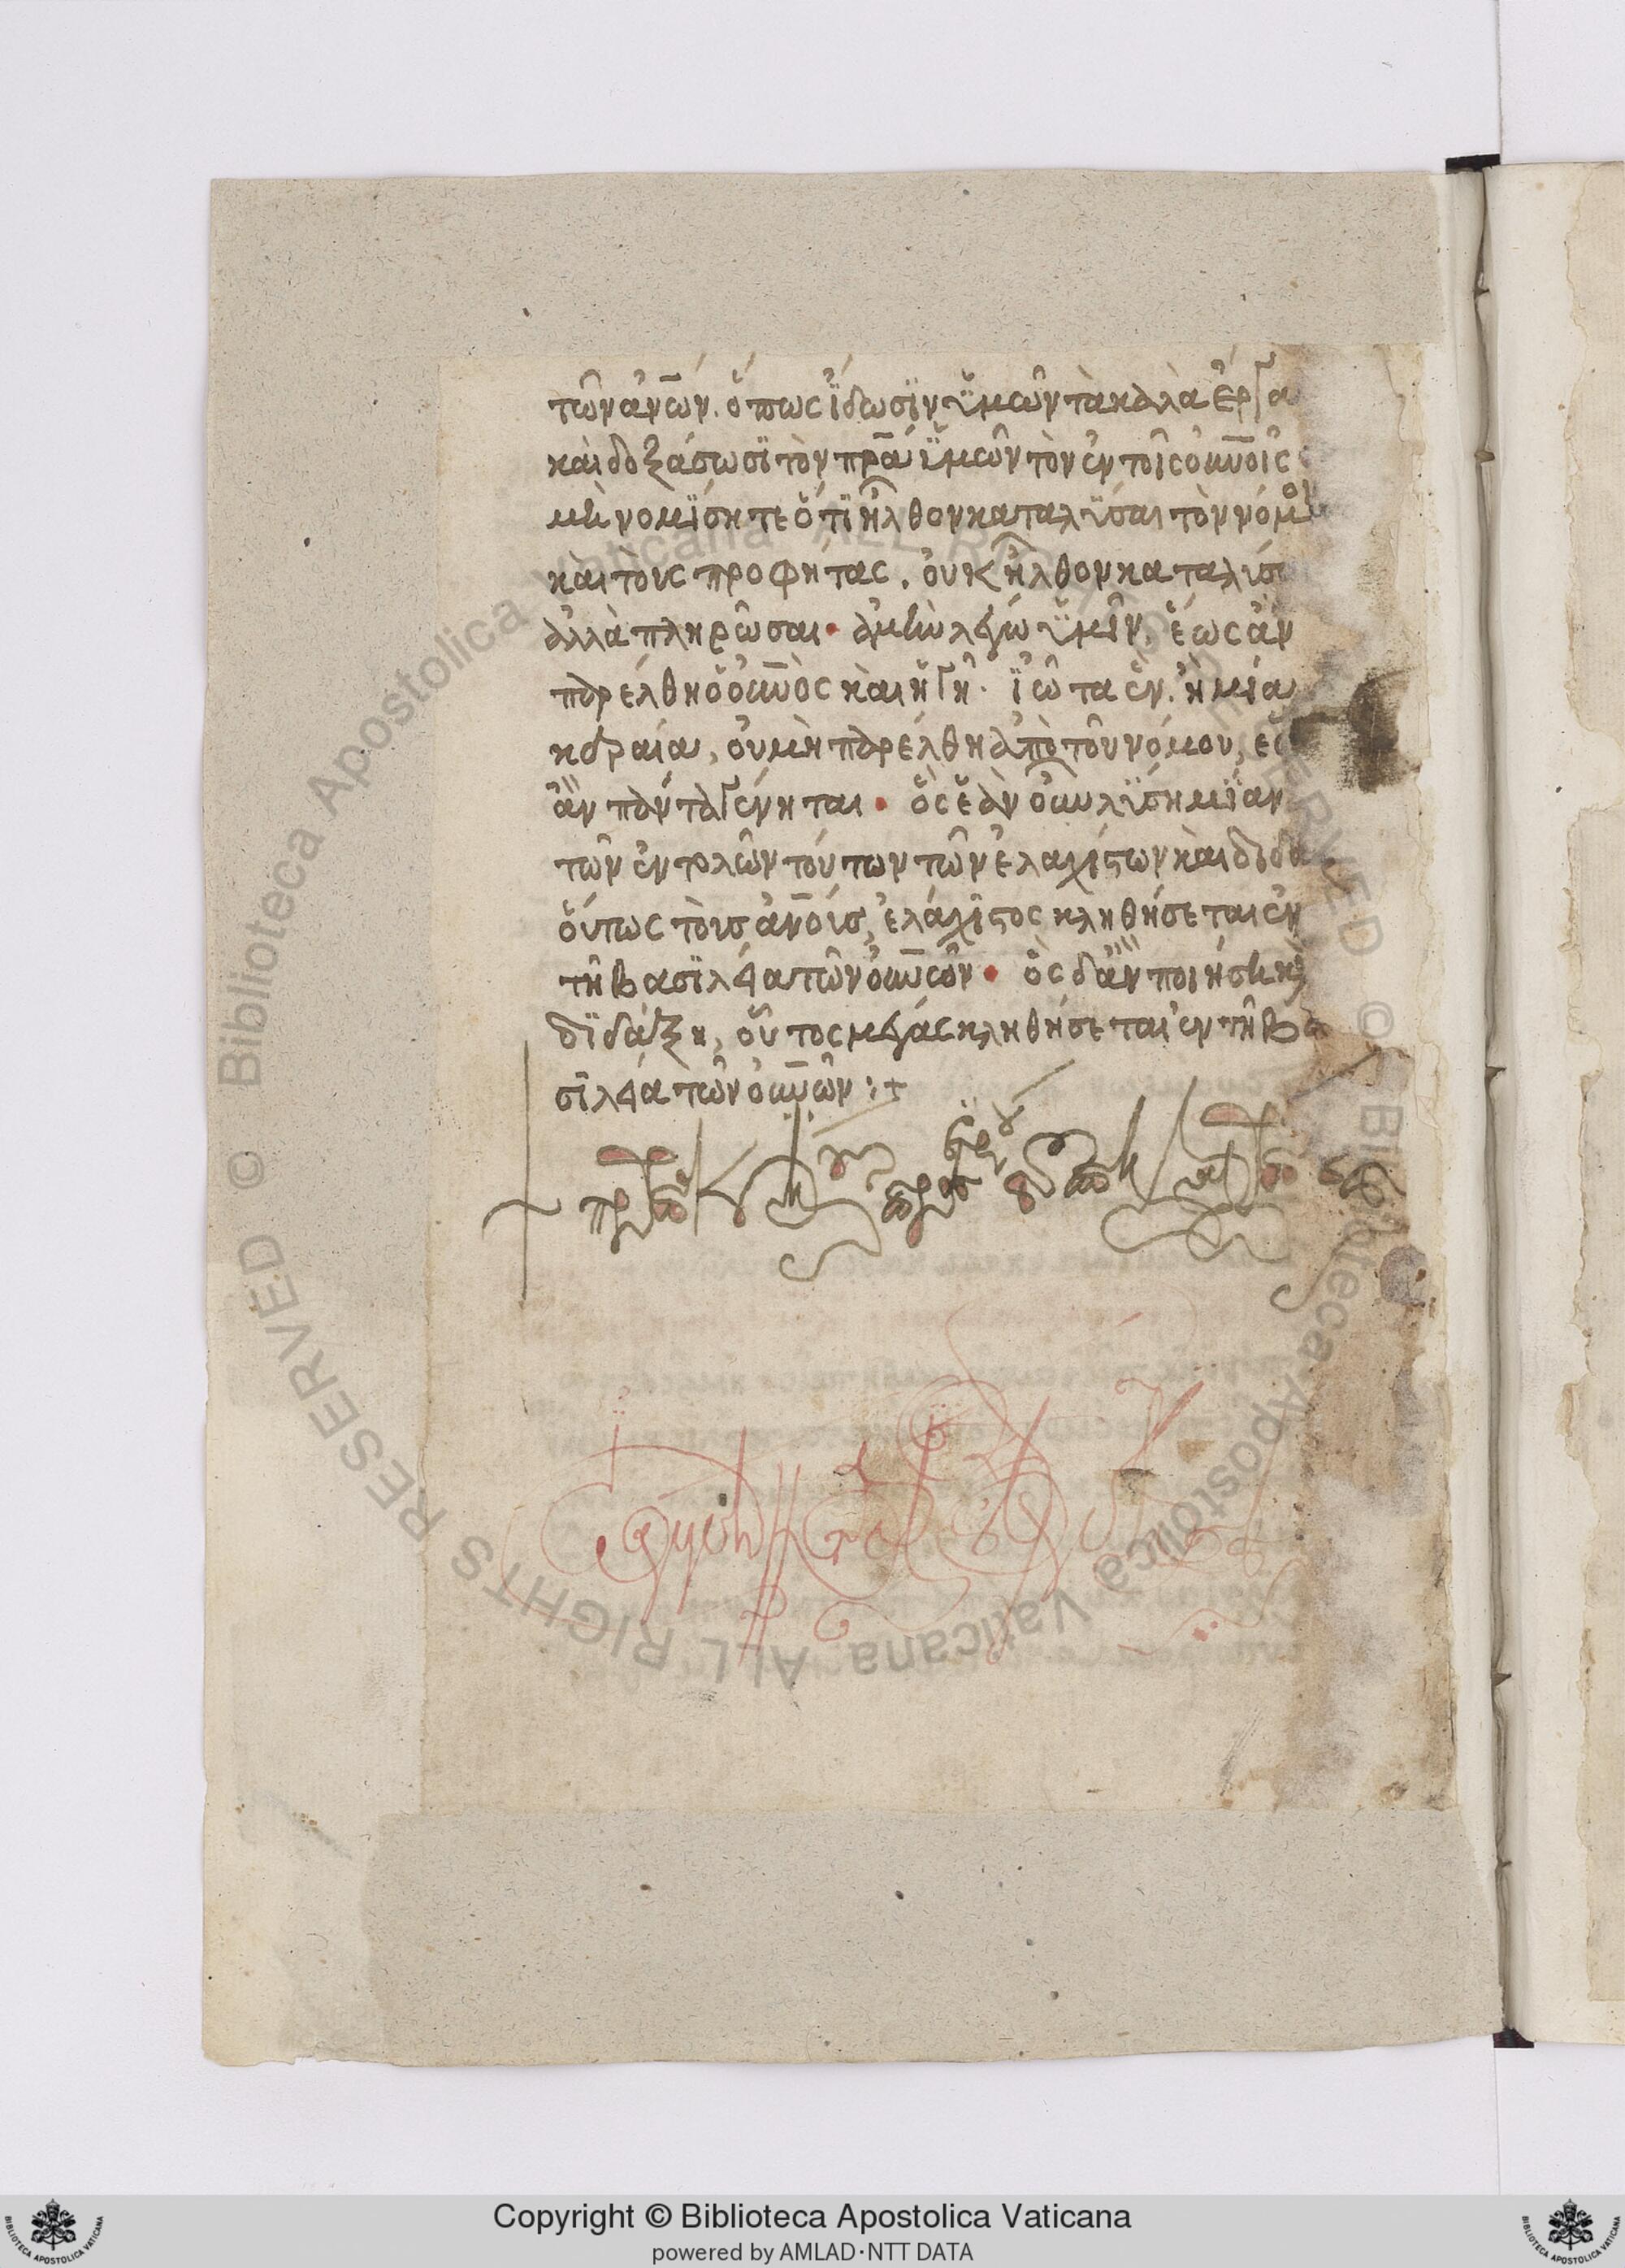 τῶν ἀν̅ων. ὅπως ἴδωσϊν ὑμῶν τὰ καλὰ ἐργα
καὶ δοξάσωσϊ τὸν πρ̅α ὑμῶν τὸν ἐν τοῖς οὐν̅οις
μὴ νομΐσητε ὅτϊ ἦλθον καταλῦσαι τὸν νόμον
καὶ τοὺς προφήτας. οὐκ ἦλθον καταλῦσαι
ἀλλὰ πληρῶσαι· ἀμὴν λέγω ὑμῖν. ἕως ἂν
παρέλθη ὁ οὐν̅ὸς καὶ ἡ γῆ. ἰῶτα ἓν. ἢ μία
κεραία, οὐ μὴ παρέλθη ἀπὸ τοῦ νόμου, ἕως
ἂν πάντα γένηται· ὃς ἐὰν οὖν λΰση μΐαν
τῶν ἐντολῶν τούτων τῶν ἐλαχίστων καὶ διδα
οὕτως τοὺς ἀν̅ους, ἐλάχϊστος κληθήσεται ἐν
τῆ βασϊλεία τῶν οὐν̅ῶν· ὃς δ' ἂν ποιήση καὶ
δϊδάξη, οὗτος μέγας κληθήσεται ἐν τῆ βα
σϊλεία τῶν οὐν̅ῶν :+
Copyright © Biblioteca Apostolica Vaticana
powered by AMLAD·NTT DATA
© Biblioteca Apostolica Vaticana ALL RIGHTS RESERVED
© Biblioteca Apostolica Vaticana ALL RIGHTS RESERVED